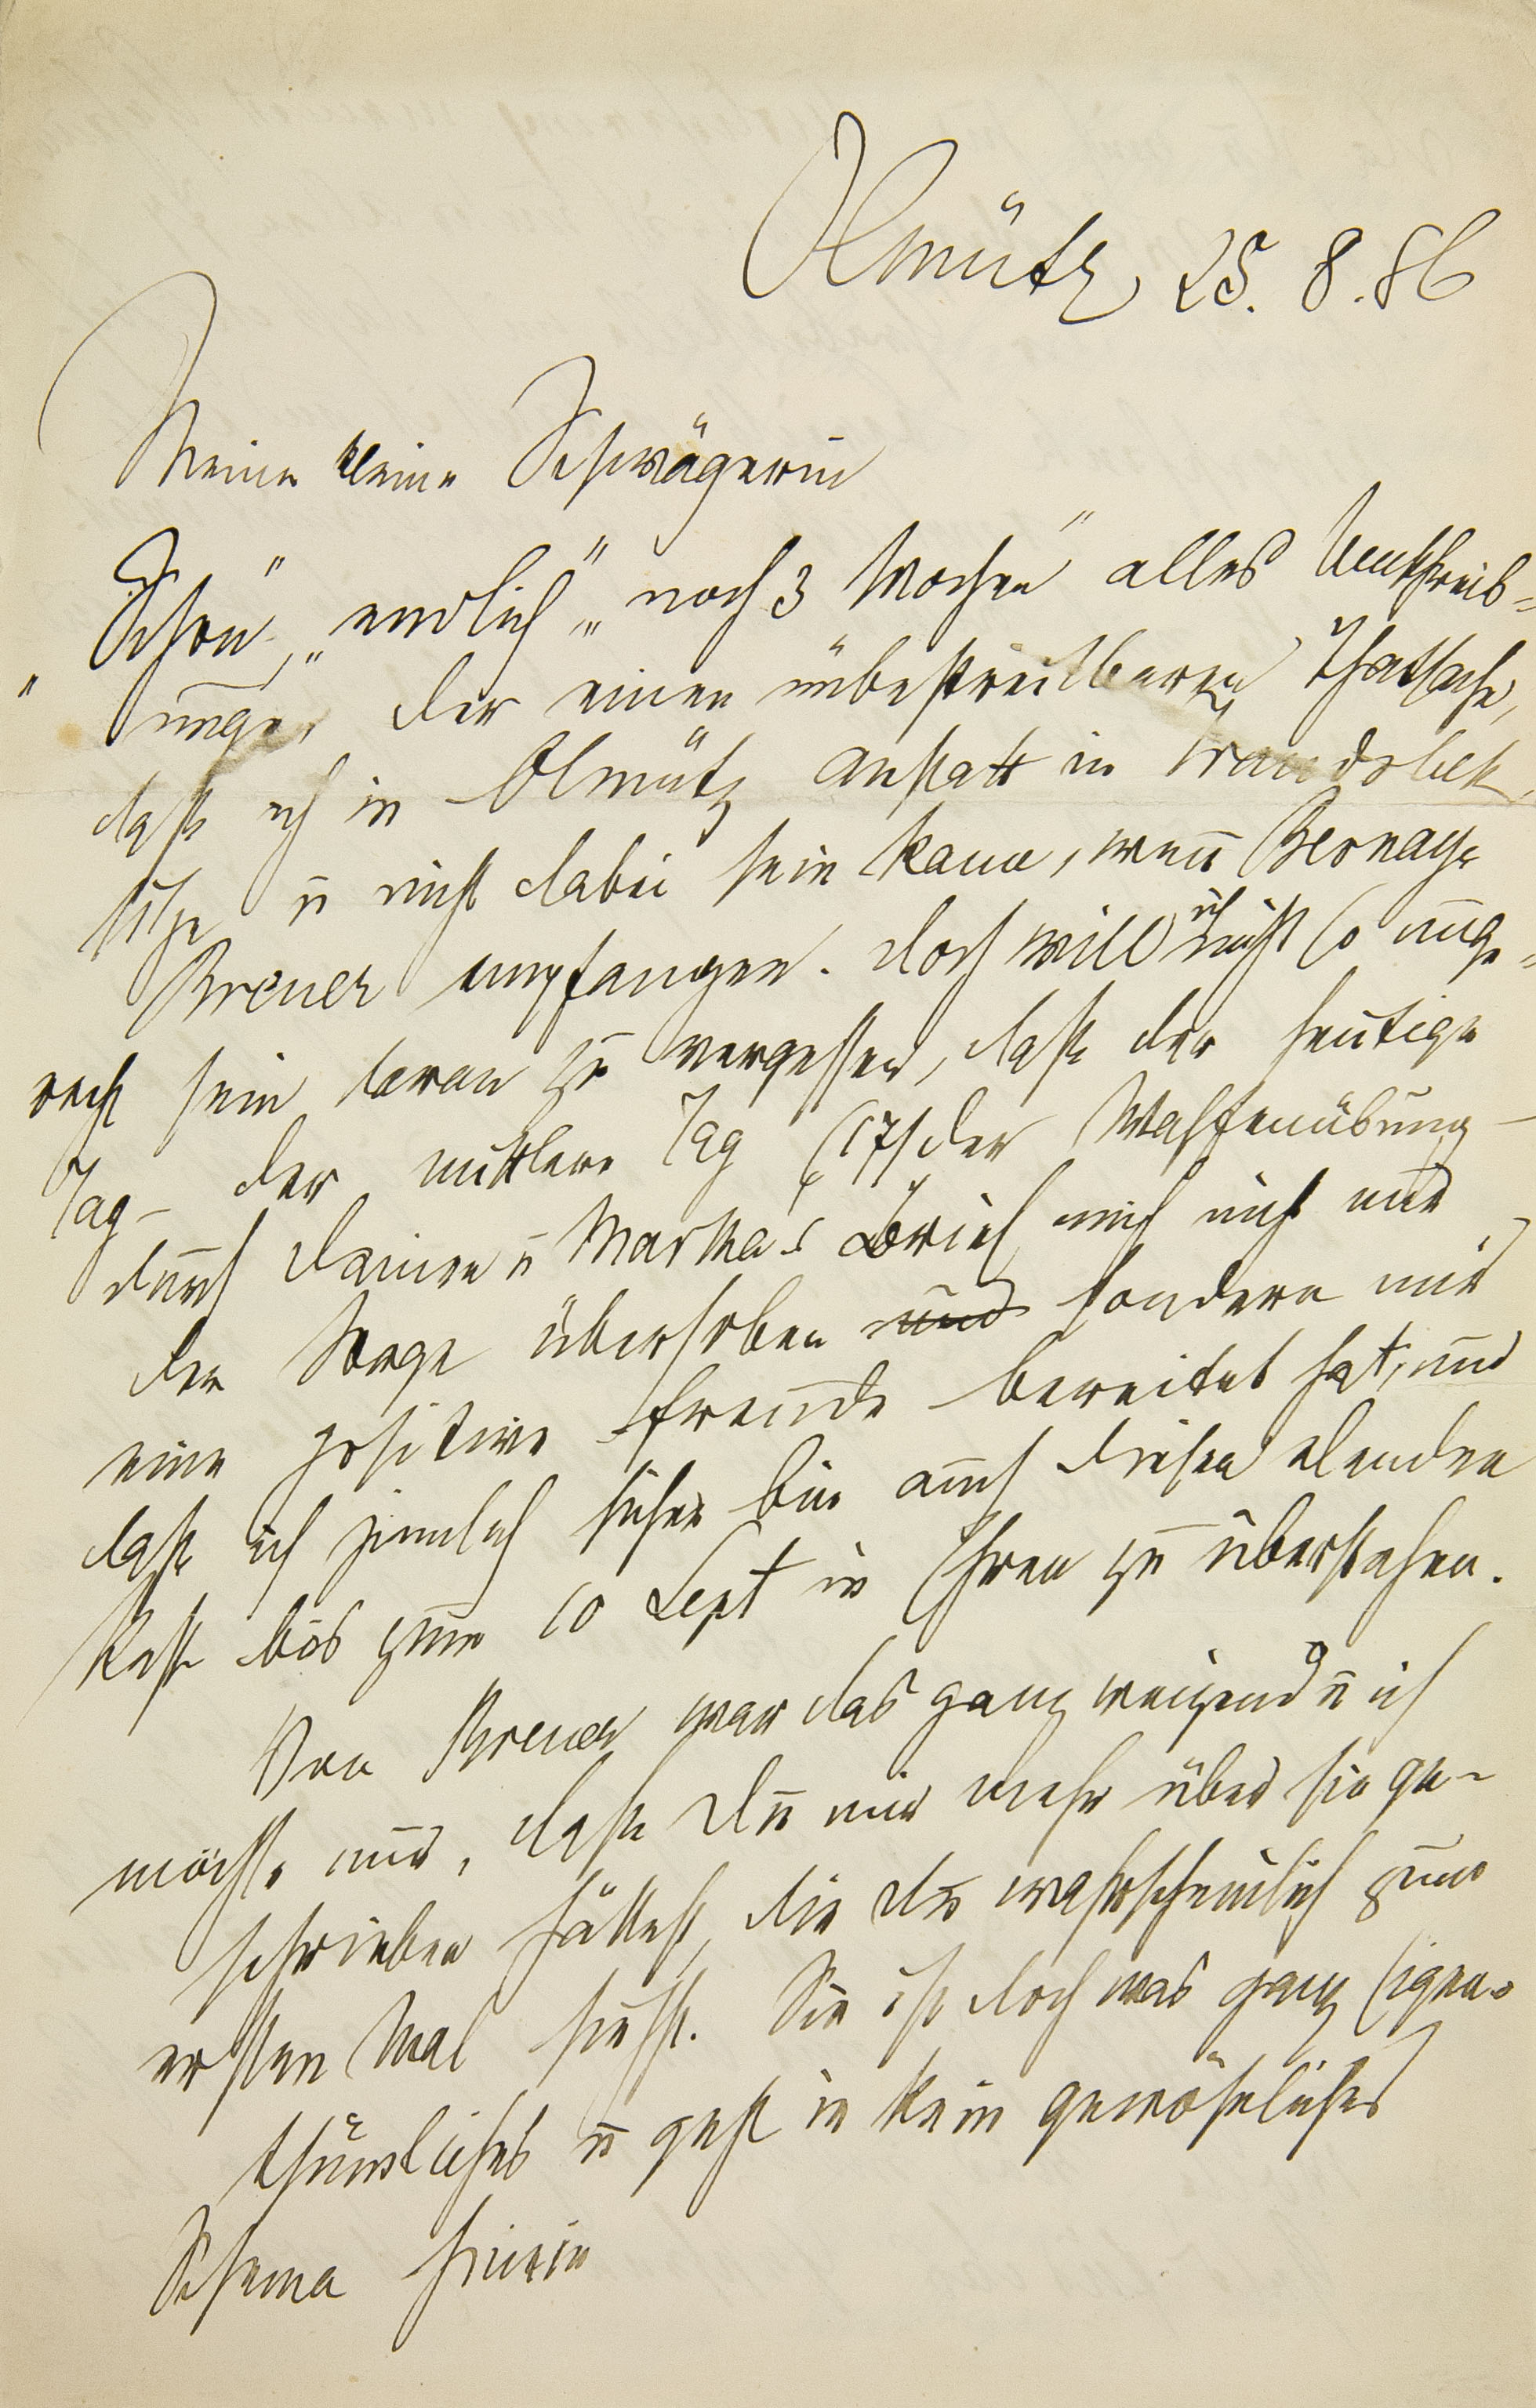 Olmütz 25. 8. 86
Meine kleine Schwägerin
„Schon“, „endlich“ „noch 3 Wochen“ alles Umschreib=
unge. der einen unbestreitbaren Thatsache,
daß ich in Olmütz anstatt in Wandsbek
sitze u nicht dabei sein kann, wenn Bernays
Breuer empfangen. Doch will ich nicht so unge=
recht sein daran zu vergessen, daß der heutige
Tag – der mittlere Tag (17) der Waffenübung –
durch Deinen u Marthas Brief mich nicht nur
der Sorge überhoben und sondern mir
eine positive Freude bereitet hat, und
daß ich ziemlich sicher bin auch diesen elenden
Rest bis zum 10 Sept in Ehren zu überstehen.
Von Breuer war das ganz reizend u ich
möchte nur, daß Du mir mehr über sie ge-
schrieben hättest, die Du wahrscheinlich zum
ersten Mal siehst. Sie ist doch was ganz Eigen-
thümliches u geht in kein gewöhnliches
Schema hinein